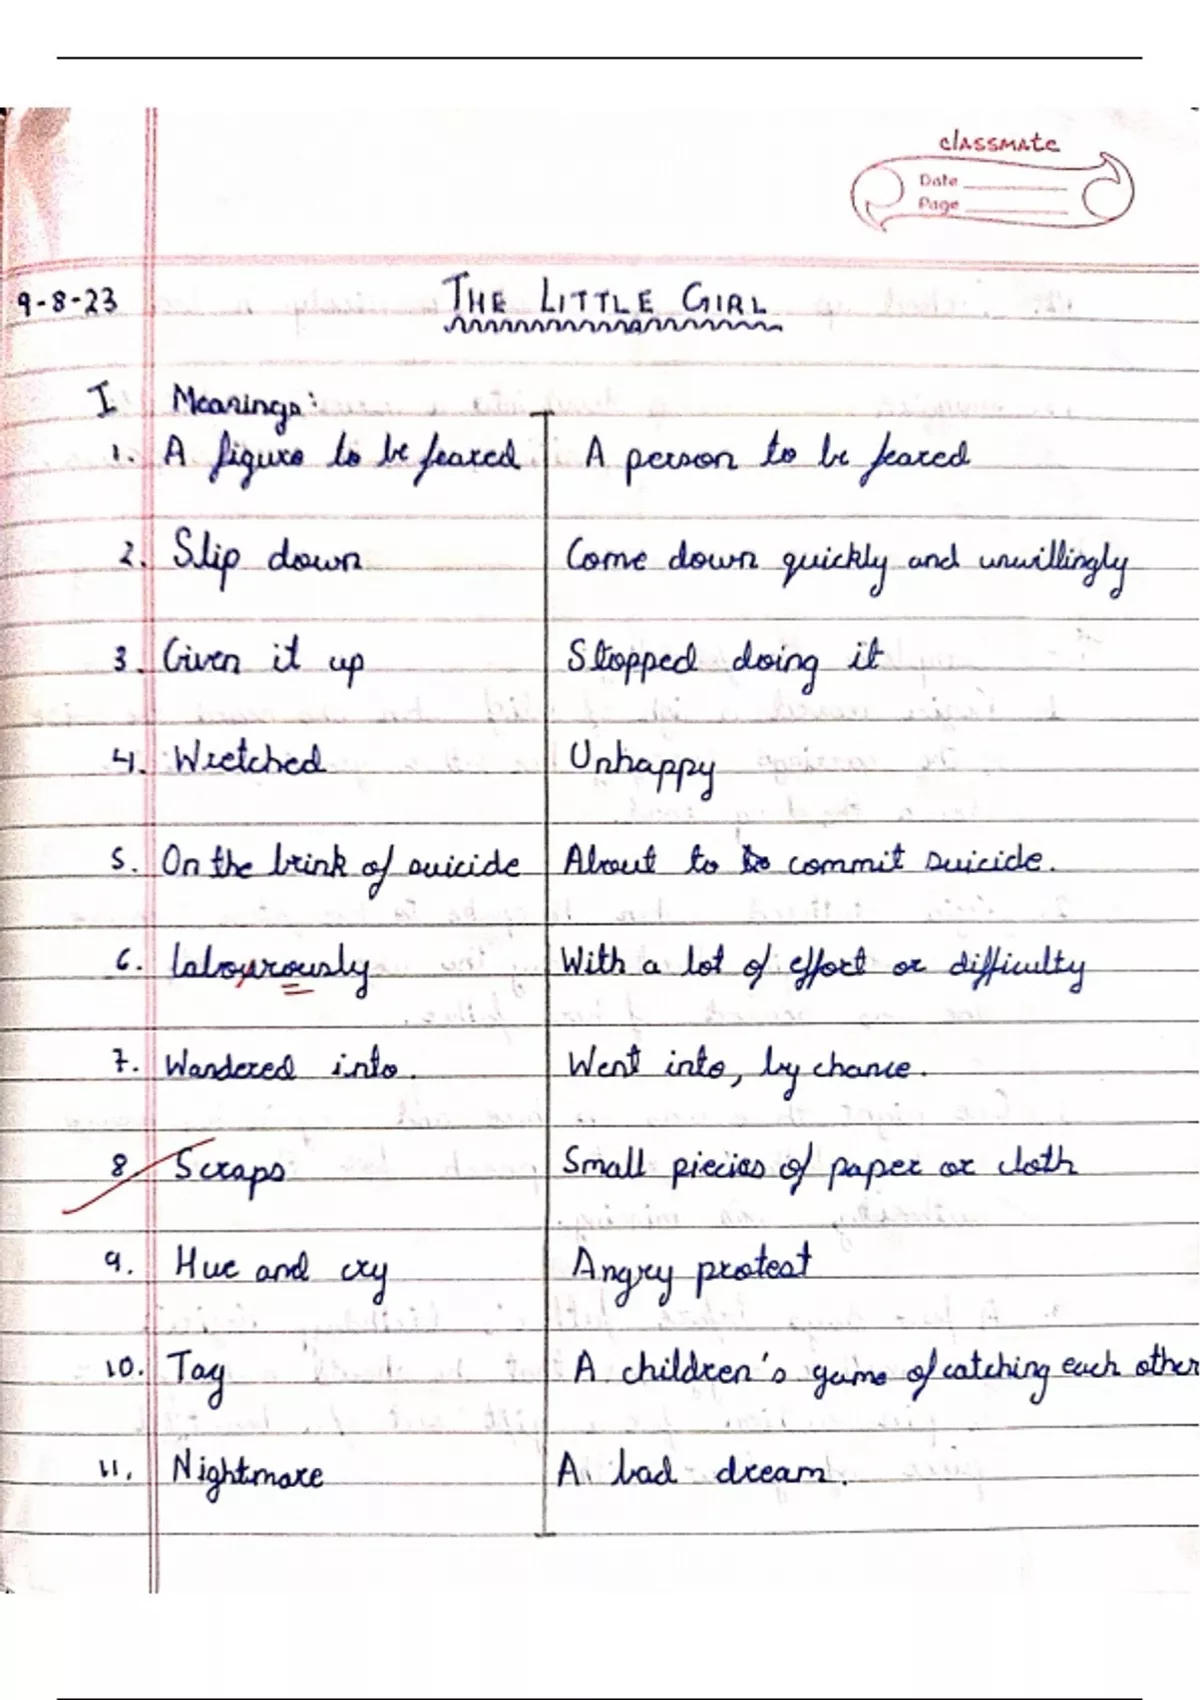 classmate
Date
Page
9-8-23 THE LITTLE GIRL
I Meanings:
1. A figure to be feared A person to be feared
2. Slip down Come down quickly and unwillingly
3. Given it up Stopped doing it
4. Wretched Unhappy
5. On the brink of suicide About to commit suicide.
6. labourously With a lot of effort or difficulty
7. Wandered into. Went into, by chance.
8. Scraps Small piecies of paper or cloth
9. Hue and cry Angry protest
10. Tag A children's game of catching each other
11. Nightmare A bad dream.